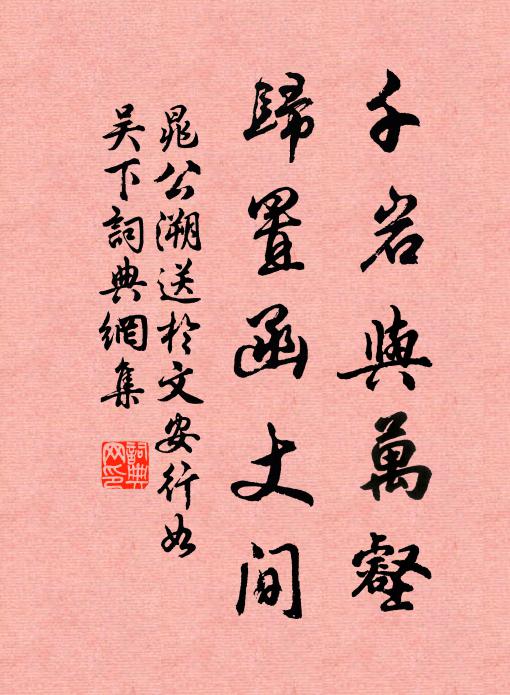 千岩與萬壑
歸置函丈间
晁公溯送於文安行如
吴下詞典網集
詞典網印